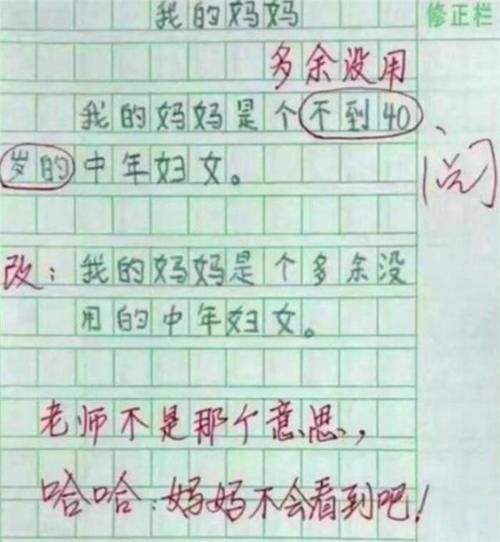 我的妈妈
修正栏
多余没用
我的妈妈是个不到40
岁的中年妇女。
阅
改：我的妈妈是个多余没
用的中年妇女。
老师不是那个意思，
哈哈：妈妈不会看到吧！